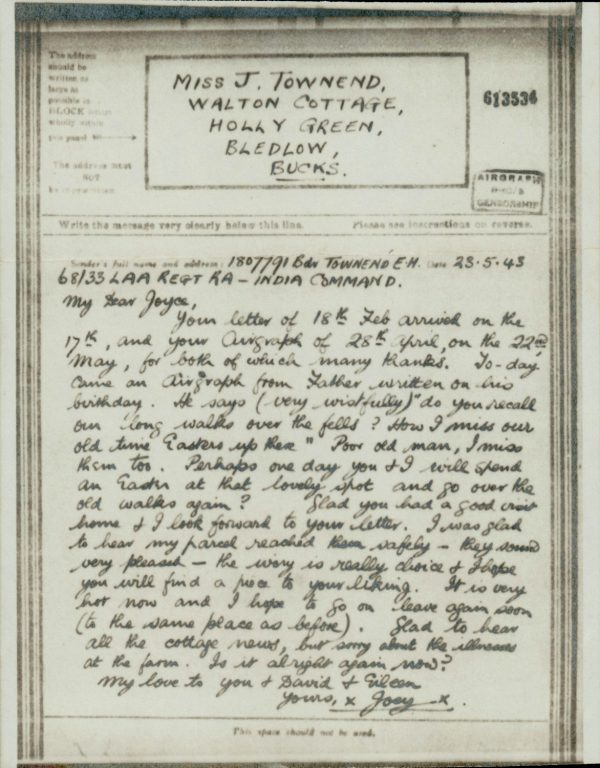 The address
should be
written as
large as
possible in
BLOCK
wholly within
this panel
The address must
NOT
be
MISS J. TOWNEND,
WALTON COTTAGE,
HOLLY GREEN,
BLEDLOW,
BUCKS.
613534
AIRGRAPH
CENSORSHIP
Write the message very clearly below this line.
Please see instructions on reverse.
Sender's full name and address: 1807791 Bdr TOWNEND E.H. Date 23.5.43
68/33 LAA REGT RA - INDIA COMMAND.
My Dear Joyce,
Your letter of 18th Feb arrived on the
17th, and your Airgraph of 28th April, on the 22nd
May, for both of which many thanks. To-day
came an Airgraph from Father written on his
birthday. He says (very wistfully) "do you recall
our long walks over the fells? How I miss our
old time Easters up there" Poor old man, I miss
them too. Perhaps one day you & I will spend
an Easter at that lovely spot and go over the
old walks again? Glad you had a good visit
home & I look forward to your letter. I was glad
to hear my parcel reached them safely - they sound
very pleased - the ivory is really choice & I hope
you will find a piece to your liking. It is very
hot now and I hope to go on leave again soon
(to the same place as before). Glad to hear
all the cottage news, but sorry about the illnesses
at the farm. Is it alright again now?
My love to you & David & Eileen
Yours, x Joey x.
This space should not be used.